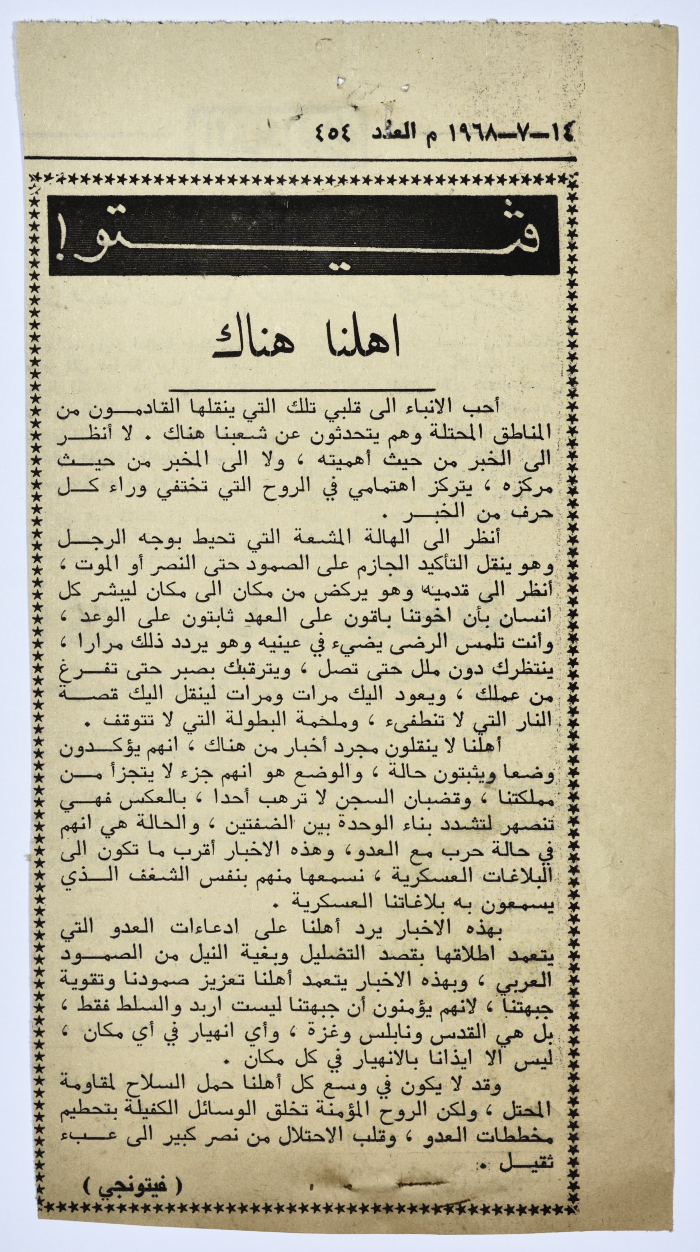 ١٤-٧-١٩٦٨ م العدد ٤٥٤
ڤيتو !
اهلنا هناك
أحب الانباء الى قلبي تلك التي ينقلها القادمون من
المناطق المحتلة وهم يتحدثون عن شعبنا هناك . لا أنظر
الى الخبر من حيث أهميته ، ولا الى المخبر من حيث
مركزه ، يتركز اهتمامي في الروح التي تختفي وراء كل
حرف من الخبر .
أنظر الى الهالة المشعة التي تحيط بوجه الرجل
وهو ينقل التأكيد الجازم على الصمود حتى النصر أو الموت ،
أنظر الى قدميه وهو يركض من مكان الى مكان ليبشر كل
انسان بأن اخوتنا باقون على العهد ثابتون على الوعد ،
وأنت تلمس الرضى يضيء في عينيه وهو يردد ذلك مرارا ،
ينتظرك دون ملل حتى تصل ، ويترقبك بصبر حتى تفرغ
من عملك ، ويعود اليك مرات ومرات لينقل اليك قصة
النار التي لا تنطفىء ، وملحمة البطولة التي لا تتوقف .
أهلنا لا ينقلون مجرد أخبار من هناك ، انهم يؤكدون
وضعا ويثبتون حالة ، والوضع هو انهم جزء لا يتجزأ من
مملكتنا ، وقضبان السجن لا ترهب أحدا ، بالعكس فهي
تنصهر لتشدد بناء الوحدة بين الضفتين ، والحالة هي انهم
في حالة حرب مع العدو، وهذه الاخبار أقرب ما تكون الى
البلاغات العسكرية ، نسمعها منهم بنفس الشغف الذي
يسمعون به بلاغاتنا العسكرية .
بهذه الاخبار يرد أهلنا على ادعاءات العدو التي
يتعمد اطلاقها بقصد التضليل وبغية النيل من الصمود
العربي ، وبهذه الاخبار يتعمد أهلنا تعزيز صمودنا وتقوية
جبهتنا ، لانهم يؤمنون أن جبهتنا ليست اربد والسلط فقط ،
بل هي القدس ونابلس وغزة ، وأي انهيار في أي مكان ،
ليس الا ايذانا بالانهيار في كل مكان .
وقد لا يكون في وسع كل أهلنا حمل السلاح لمقاومة
المحتل ، ولكن الروح المؤمنة تخلق الوسائل الكفيلة بتحطيم
مخططات العدو ، وقلب الاحتلال من نصر كبير الى عبء
ثقيل .
( فيتونجي )